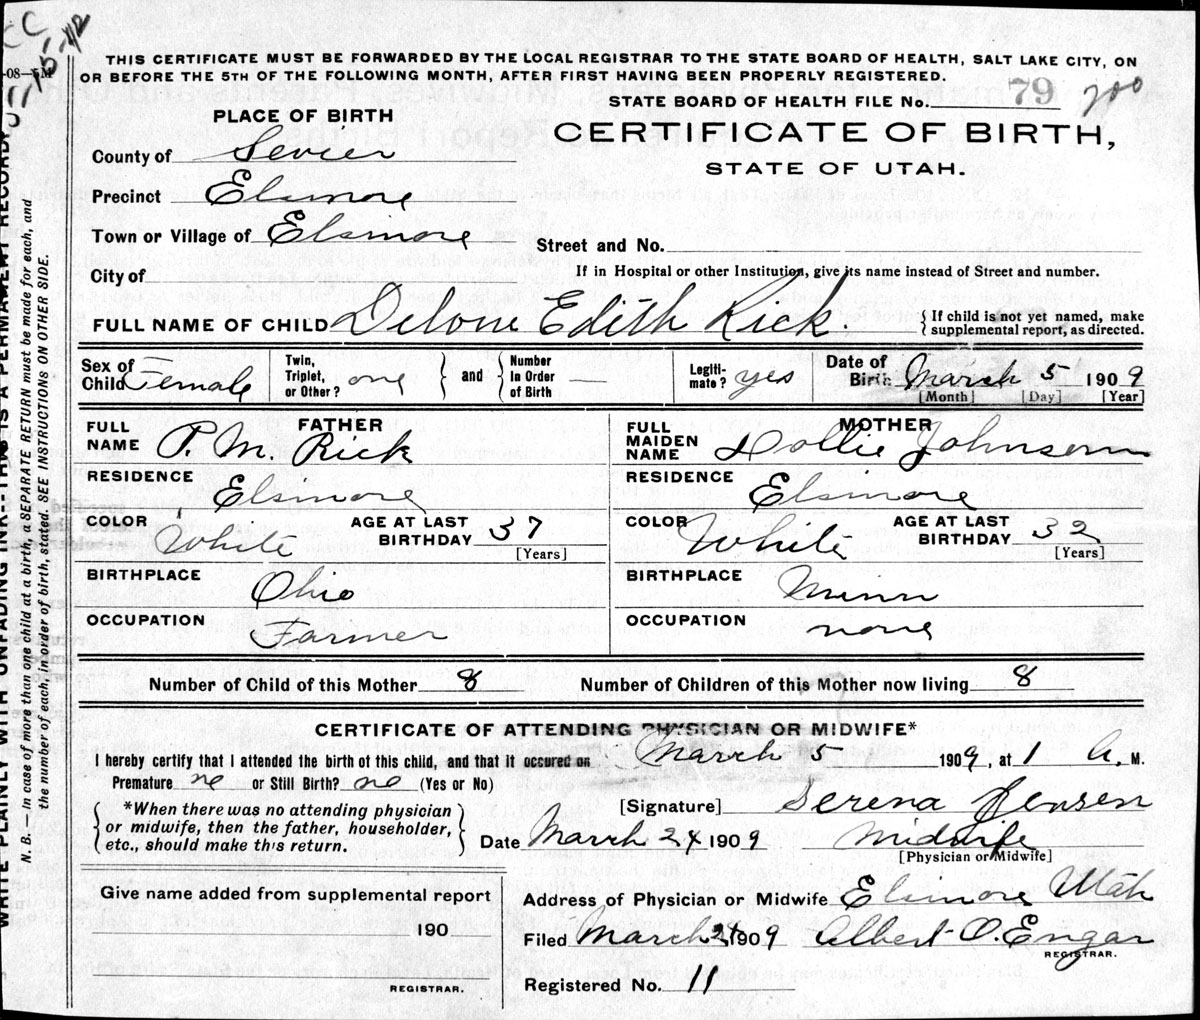 THIS CERTIFICATE MUST BE FORWARDED BY THE LOCAL REGISTRAR TO THE STATE BOARD OF HEALTH, SALT LAKE CITY, ON
OR BEFORE THE 5TH OF THE FOLLOWING MONTH, AFTER FIRST HAVING BEEN PROPERLY REGISTERED.
STATE BOARD OF HEALTH FILE No. 79 700
PLACE OF BIRTH
CERTIFICATE OF BIRTH,
STATE OF UTAH.
County of Sevier
Precinct Elsinore
Town or Village of Elsinore
Street and No.
City of
If in Hospital or other Institution, give its name instead of Street and number.
FULL NAME OF CHILD Delone Edith Rick. { If child is not yet named, make
supplemental report, as directed.
Sex of Child Female Twin, Triplet, or Other? one } and { Number In Order of Birth — Legiti- mate? yes Date of Birth March 5 1909
[Month] [Day] [Year]
FATHER
FULL NAME P. M. Rick
MOTHER
FULL MAIDEN NAME Dollie Johnson
RESIDENCE Elsinore
RESIDENCE Elsinore
COLOR White AGE AT LAST BIRTHDAY 37 [Years]
COLOR White AGE AT LAST BIRTHDAY 32 [Years]
BIRTHPLACE Ohio
BIRTHPLACE Minn
OCCUPATION Farmer
OCCUPATION none
Number of Child of this Mother 8 Number of Children of this Mother now living 8
CERTIFICATE OF ATTENDING PHYSICIAN OR MIDWIFE*
I hereby certify that I attended the birth of this child, and that it occured on March 5 1909, at 1 A. M.
Premature no or Still Birth? no (Yes or No)
*When there was no attending physician
or midwife, then the father, householder,
etc., should make this return.
[Signature] Serena Jensen
Date March 24 1909 Midwife
[Physician or Midwife]
Give name added from supplemental report
190
REGISTRAR.
Address of Physician or Midwife Elsinore Utah
Filed March 24 1909 Albert O. Engar
REGISTRAR.
Registered No. 11
WRITE PLAINLY WITH UNFADING INK—THIS IS A PERMANENT RECORD.
N. B.—In case of more than one child at a birth, a SEPARATE RETURN must be made for each, and
the number of each, in order of birth, stated. SEE INSTRUCTIONS ON OTHER SIDE.